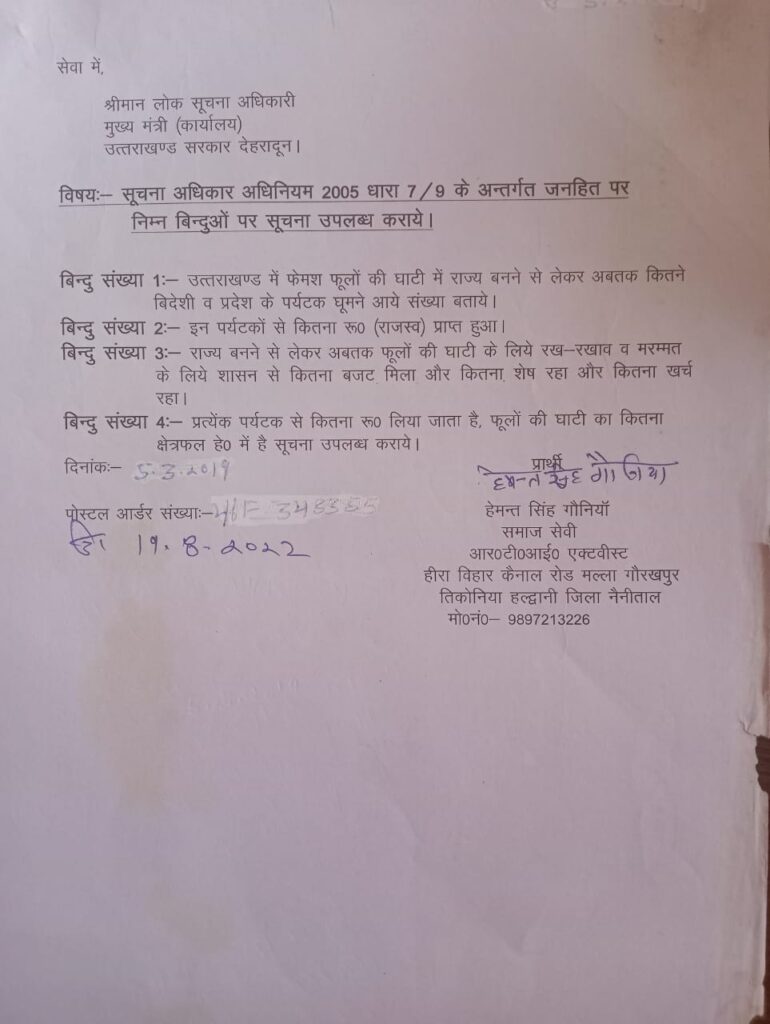 सेवा में,
श्रीमान लोक सूचना अधिकारी
मुख्य मंत्री (कार्यालय)
उत्तराखण्ड सरकार देहरादून।
विषयः– सूचना अधिकार अधिनियम 2005 धारा 7/9 के अन्तर्गत जनहित पर
निम्न बिन्दुओं पर सूचना उपलब्ध कराये।
बिन्दु संख्या 1ः– उत्तराखण्ड में फेमश फूलों की घाटी में राज्य बनने से लेकर अबतक कितने
बिदेशी व प्रदेश के पर्यटक घूमने आये संख्या बताये।
बिन्दु संख्या 2ः– इन पर्यटकों से कितना रू0 (राजस्व) प्राप्त हुआ।
बिन्दु संख्या 3ः– राज्य बनने से लेकर अबतक फूलों की घाटी के लिये रख–रखाव व मरम्मत
के लिये शासन से कितना बजट मिला और कितना शेष रहा और कितना खर्च
रहा।
बिन्दु संख्या 4ः– प्रत्येंक पर्यटक से कितना रू0 लिया जाता है, फूलों की घाटी का कितना
क्षेत्रफल हे0 में है सूचना उपलब्ध कराये।
दिनांकः– 5.3.2019
प्रार्थी
पोस्टल आर्डर संख्याः–
19.8.2022
हेमन्त सिंह गौनियॉ
समाज सेवी
आर0टी0आई0 एक्टवीस्ट
हीरा विहार कैनाल रोड मल्ला गौरखपुर
तिकोनिया हल्द्वानी जिला नैनीताल
मो0नं0– 9897213226